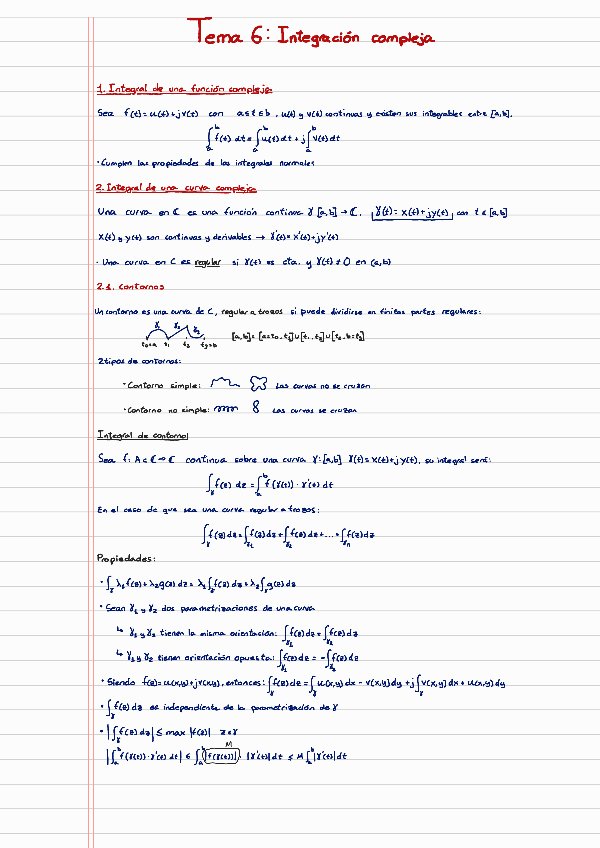 Tema 6: Integración compleja
1. Integral de una función compleja
Sea f(t)=u(t)+jv(t) con a≤t≤b, u(t) y v(t) continuas y existen sus integrables entre [a,b].
∫ₐᵇ f(t) dt = ∫ₐᵇ u(t) dt + j ∫ₐᵇ v(t) dt
· Cumplen las propiedades de las integrales normales
2. Integral de una curva compleja
Una curva en ℂ es una función continua γ [a,b] → ℂ. γ(t) = x(t)+jy(t) con t ∈ [a,b]
x(t) y y(t) son continuas y derivables → γ'(t)= x'(t)+jy'(t)
· Una curva en C es regular si γ(t) es cta. y γ(t) ≠ 0 en (a,b)
2.1. Contornos
Un contorno es una curva de C, regular a trozos si puede dividirse en finitas partes regulares:
γ₁ γ₂ γ₃
t₀=a t₁ t₂ t₃=b [a,b]= [a=t₀,t₁]∪[t₁,t₂]∪[t₂,b=t₃]
2 tipos de contornos:
· Contorno simple: Las curvas no se cruzan
· Contorno no simple: Las curvas se cruzan
Integral de contorno
Sea f: A⊂ℂ→ℂ continua sobre una curva γ:[a,b] γ(t)= x(t)+jy(t), su integral será:
∫_γ f(z) dz = ∫ₐᵇ f(γ(t)) · γ'(t) dt
En el caso de que sea una curva regular a trozos:
∫_γ f(z) dz = ∫_γ₁ f(z) dz + ∫_γ₂ f(z) dz + ... + ∫_γₙ f(z) dz
Propiedades:
· ∫_γ λ₁ f(z) + λ₂ g(z) dz = λ₁ ∫_γ f(z) dz + λ₂ ∫_γ g(z) dz
· Sean γ₁ y γ₂ dos parametrizaciones de una curva
↳ γ₁ y γ₂ tienen la misma orientación: ∫_γ₁ f(z) dz = ∫_γ₂ f(z) dz
↳ γ₁ y γ₂ tienen orientación opuesta: ∫_γ₁ f(z) dz = - ∫_γ₂ f(z) dz
· Siendo f(z)= u(x,y)+jv(x,y), entonces: ∫_γ f(z) dz = ∫_γ u(x,y) dx - v(x,y) dy + j ∫_γ v(x,y) dx + u(x,y) dy
· ∫_γ f(z) dz es independiente de la parametrización de γ
· |∫_γ f(z) dz| ≤ max |f(z)| z∈γ
M
|∫ₐᵇ f(γ(t)) · γ'(t) dt| ≤ ∫ₐᵇ |f(γ(t))| · |γ'(t)| dt ≤ M ∫ₐᵇ |γ'(t)| dt